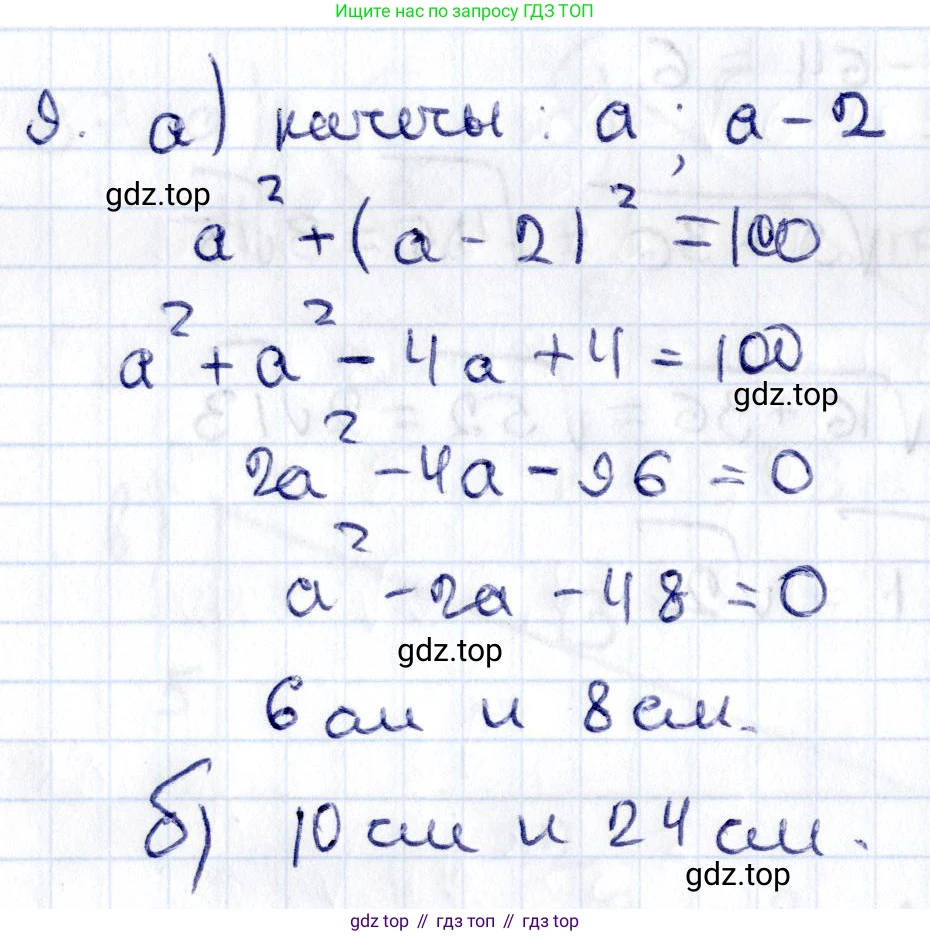 Ищите нас по запросу ГДЗ ТОП
9. а) катеты: a; a - 2
gdz.top
a² + (a - 2)² = 100
a² + a² - 4a + 4 = 100
gdz.top
2a² - 4a - 96 = 0
a² - 2a - 48 = 0
gdz.top
6 см и 8 см.
б) 10 см и 24 см.
gdz.top
gdz.top // гдз топ // gdz.top // гдз топ